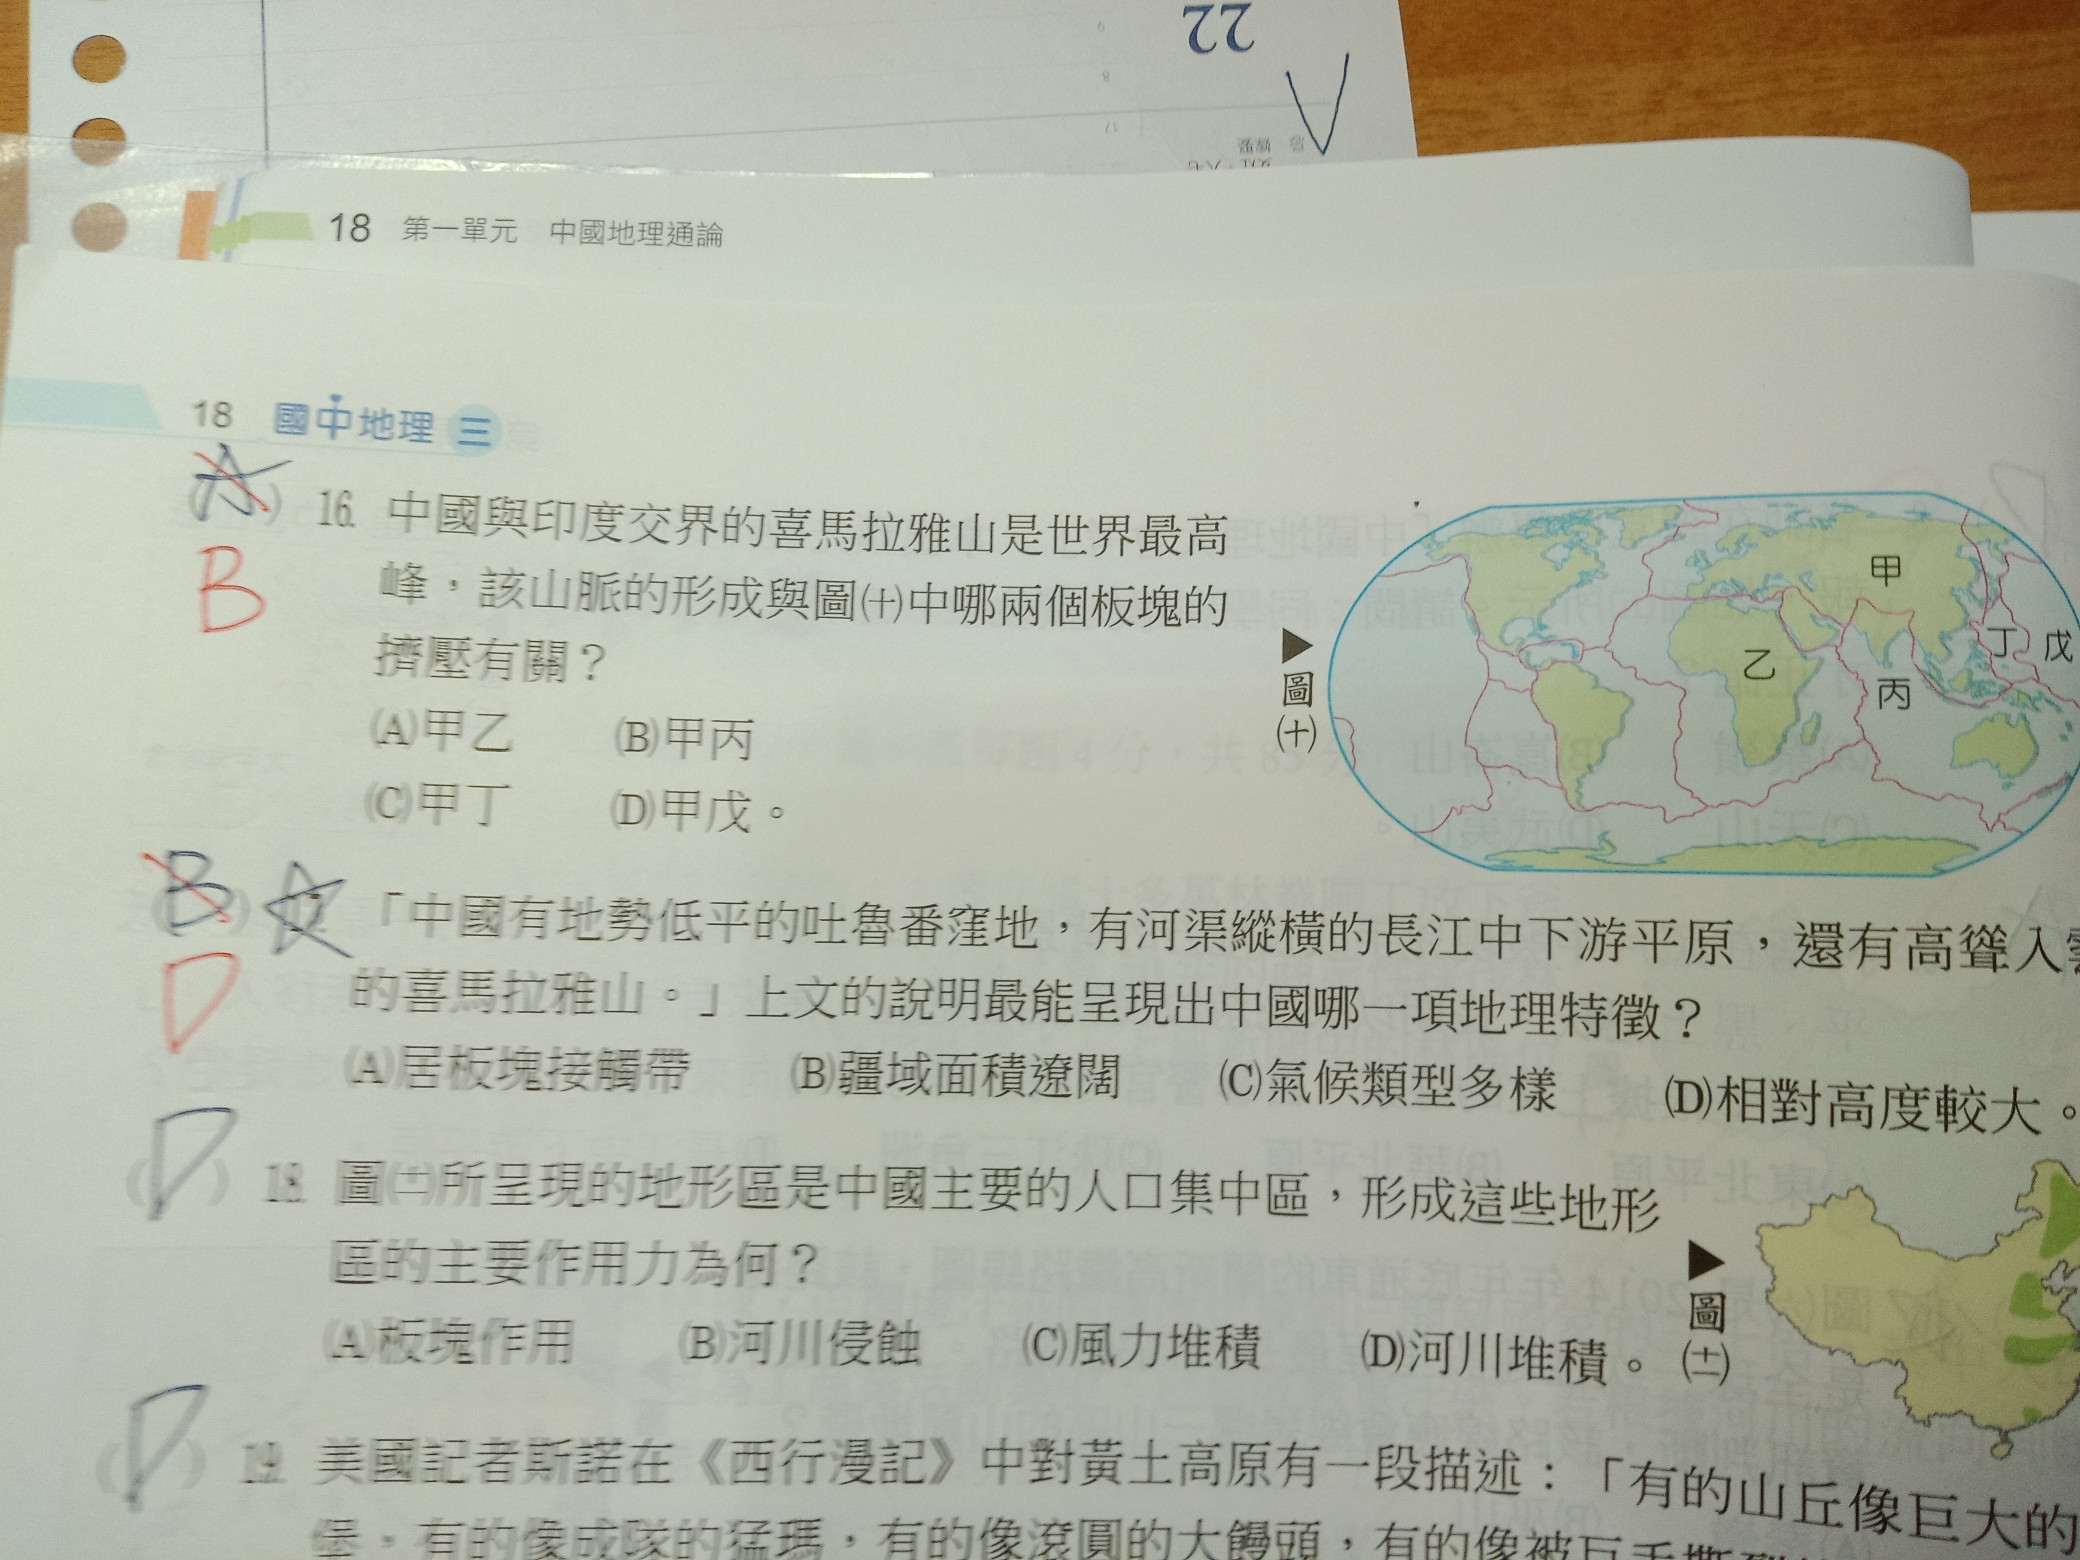 22
18 第一單元 中國地理通論
18 國中地理 三
A
B
16. 中國與印度交界的喜馬拉雅山是世界最高
峰，該山脈的形成與圖㈩中哪兩個板塊的
擠壓有關？
(A)甲乙 (B)甲丙
(C)甲丁 (D)甲戊。
▶圖㈩
甲
乙
丙
丁
戊
B
D
「中國有地勢低平的吐魯番窪地，有河渠縱橫的長江中下游平原，還有高聳入
的喜馬拉雅山。」上文的說明最能呈現出中國哪一項地理特徵？
(A)居板塊接觸帶 (B)疆域面積遼闊 (C)氣候類型多樣 (D)相對高度較大。
D
18. 圖(十一)所呈現的地形區是中國主要的人口集中區，形成這些地形
區的主要作用力為何？
(A)板塊作用 (B)河川侵蝕 (C)風力堆積 (D)河川堆積。
▶圖(十一)
D
19. 美國記者斯諾在《西行漫記》中對黃土高原有一段描述：「有的山丘像巨大的
堡，有的像成隊的猛瑪，有的像滾圓的大饅頭，有的像被巨手撕